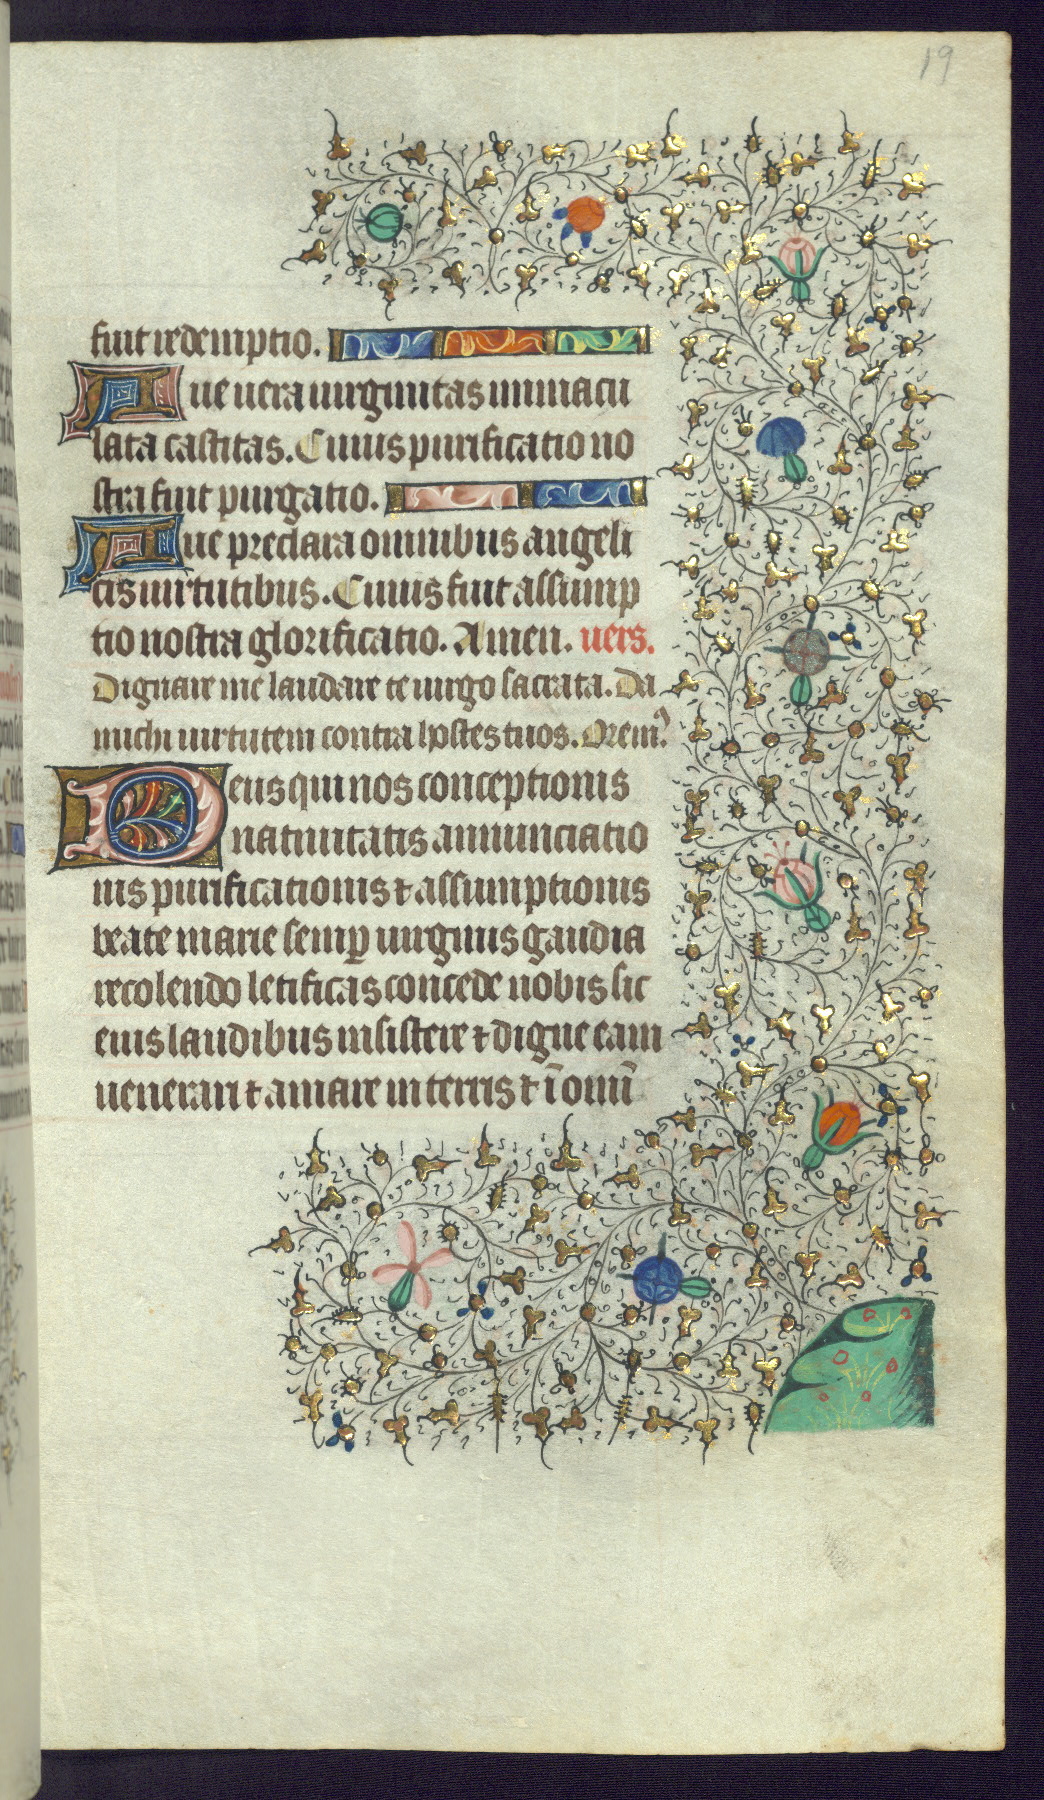 19
fuit redemptio.
Aue uera uirginitas immacu
lata castitas. Cuius purificatio no
stra fuit purgatio.
Aue preclara omnibus angeli
cis uirtutibus. Cuius fuit assump
tio nostra glorificatio. Amen. uers.
Dignare me laudare te uirgo sacrata. Da
michi uirtutem contra hostes tuos. Orem9
Deus qui nos conceptionis
natiuitatis annunciatio
nis purificationis ⁊ assumptionis
beate marie semꝑ uirginis gaudia
recolendo letificas concede nobis sic
eius laudibus insistere ⁊ digne eam
uenerari ⁊ amare in terris ⁊ ī omī